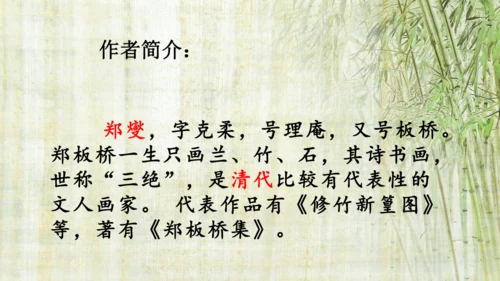 作者简介：
郑燮，字克柔，号理庵，又号板桥。
郑板桥一生只画兰、竹、石，其诗书画，
世称“三绝”，是清代比较有代表性的
文人画家。 代表作品有《修竹新篁图》
等，著有《郑板桥集》。